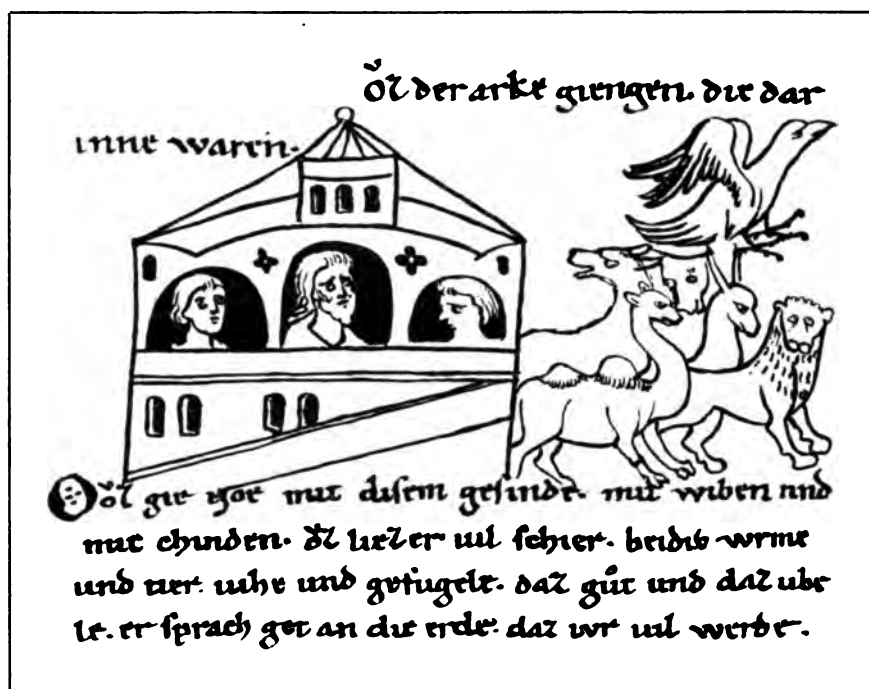 Oͮz der arke giengen. die dar
inne waren.
Oͮz gie noe mit disem gesinde. mit wiben und
mit chinden. oͮz liez er uil schier. beidiv wrme
und tier. uihe und gefugele. daz gůt und daz ube
le. er sprach get an die erde. daz iwr uil werde.